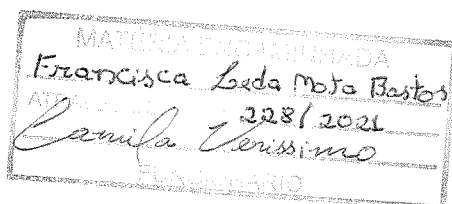 MATÉRIA ENCAMINHADA
Francisca Leda Mota Bastos
228/2021
Camila Verissimo
FUNCIONÁRIO